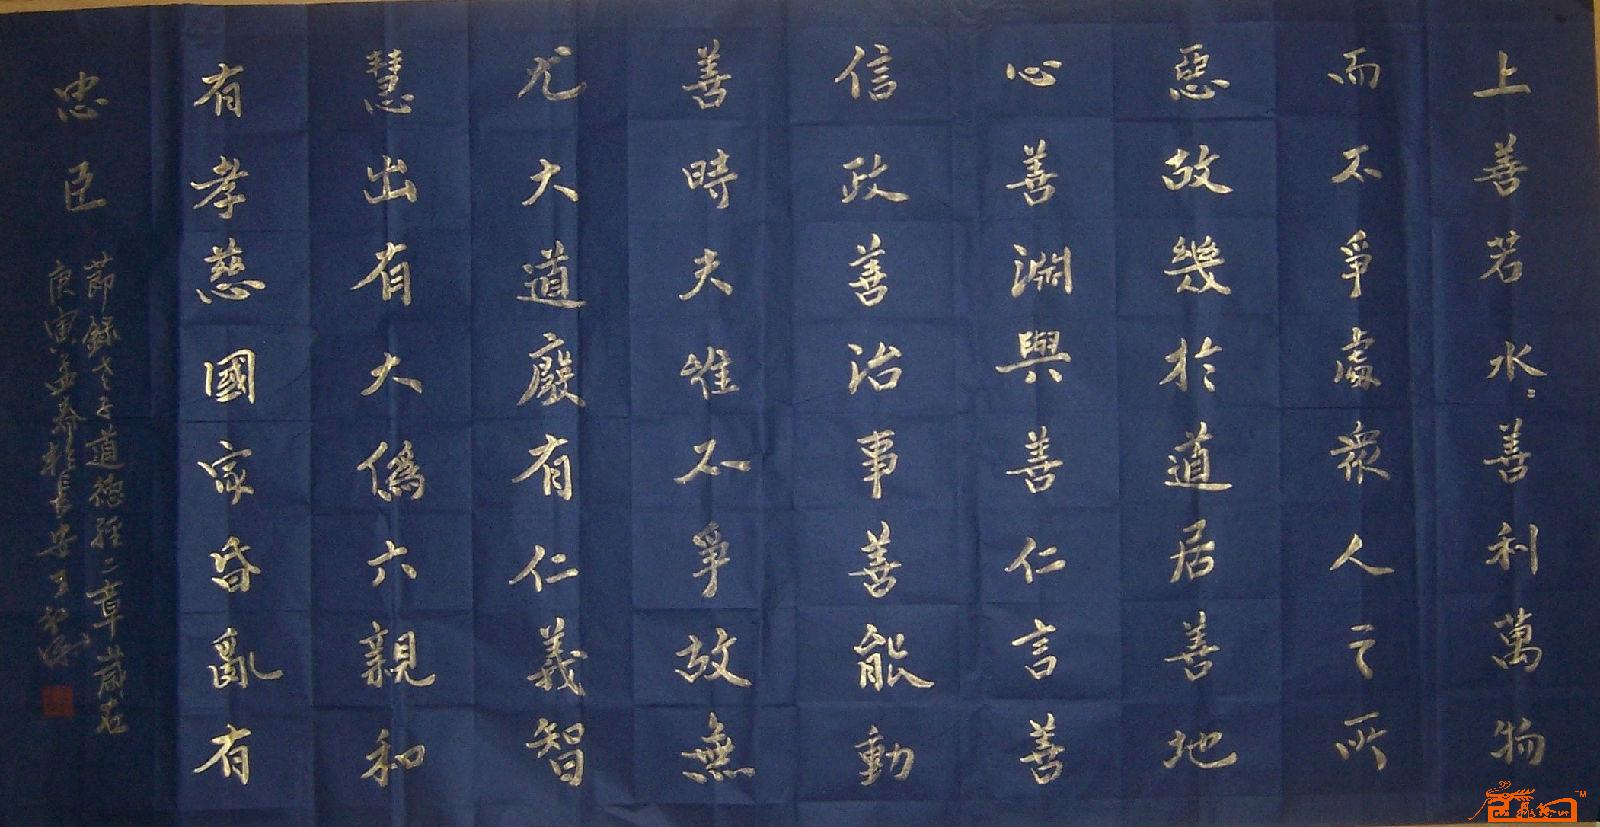 上善若水〻善利萬物
而不爭處衆人之所
惡故幾於道居善地
心善淵與善仁言善
信政善治事善能動
善時夫惟不爭故無
尤大道廢有仁義智
慧出有大僞六親和
有孝慈國家昏亂有
忠臣
節錄老子道德經二章歲在
庚寅孟春於長安王